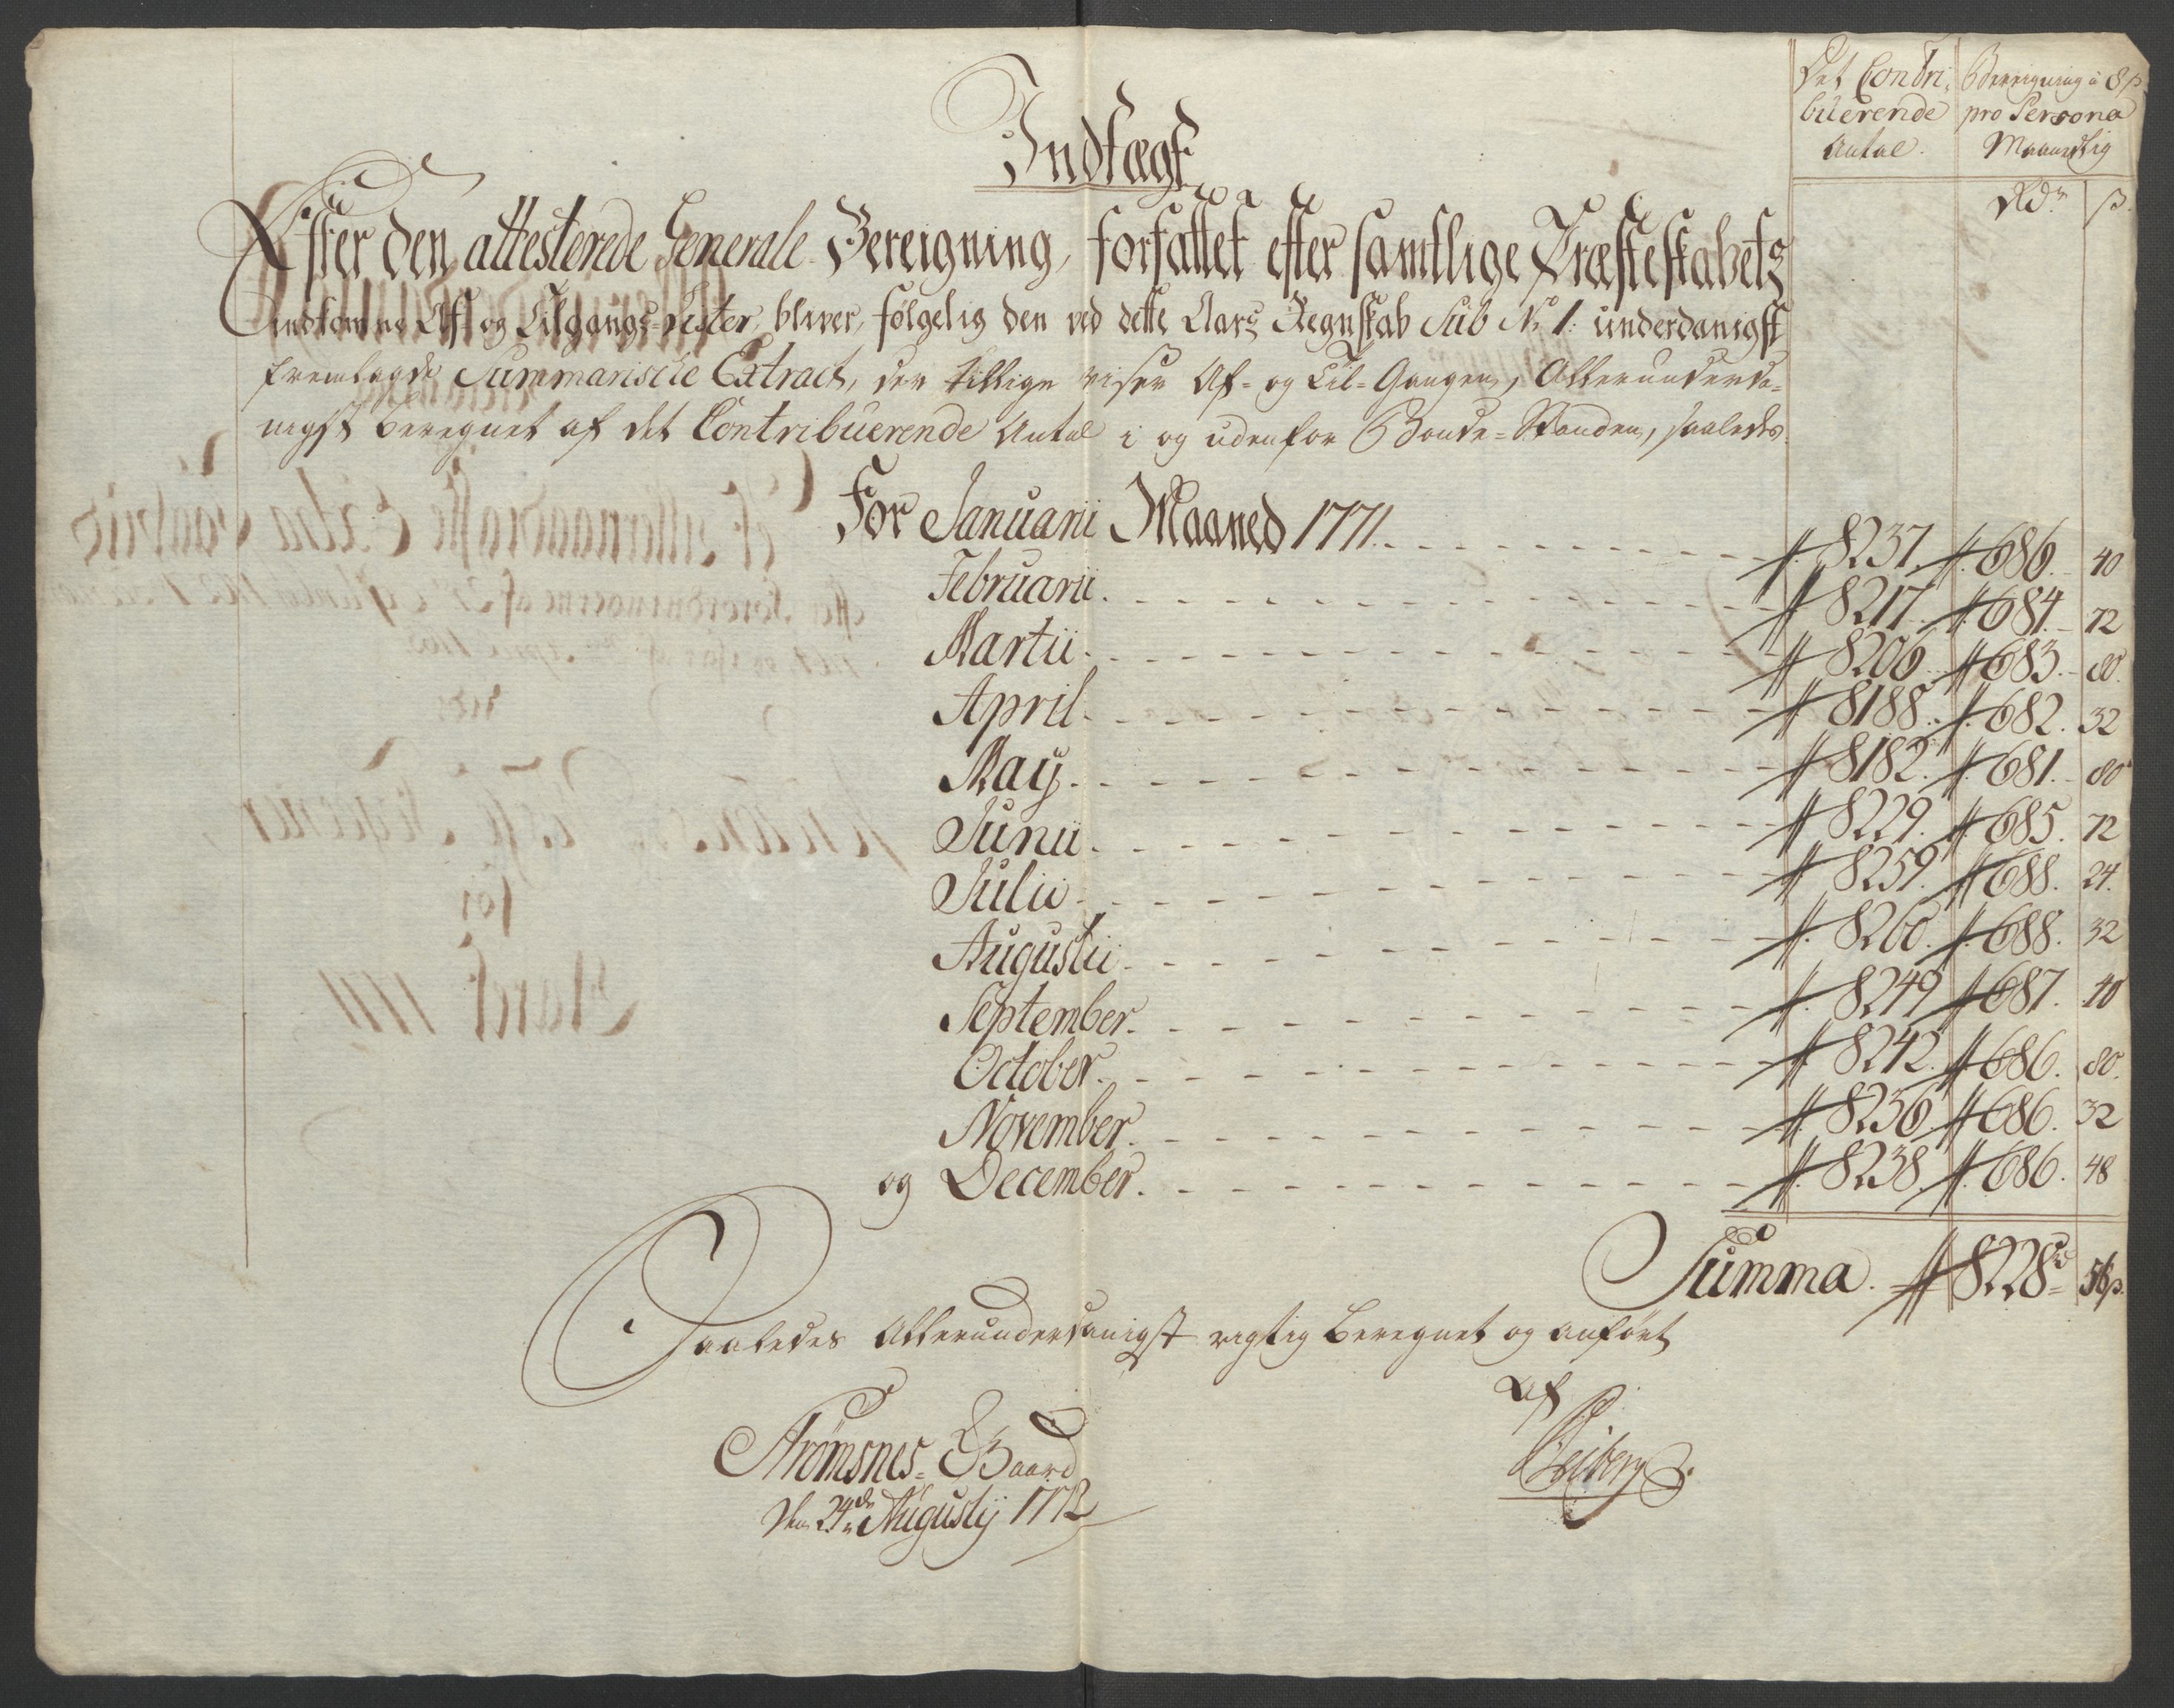 Det Contri,
buerende
Antal.
Bereigning a 8 β
pro Persona
Maanedlig
Rdr β.
Indtægt
Efter den attesterede Generale Bereigning, forfattet efter samtlige Præsteskabets
indkomne Af- og Tilgangs-Lister, bliver, følgelig den ved dette Aars Regnskab Sub No 1: underdanigst
fremlagde Summariske Extract, der tillige viser Af- og Til-Gangen, Allerunderda-
nigst beregnet af det Contribuerende Antal i og udenfor Bonde-Standen, saaledes.
For Januarii Maaned 1771. 8237. 686. 40
Februarii. 8217. 684. 72
Martii. 8206. 683. 80.
April. 8188. 682. 32
Maij. 8182. 681. 80
Junii. 8229. 685. 72
Julii. 8259. 688. 24.
Augustii. 8260. 688. 32
September. 8249. 687. 40
October. 8242. 686. 80.
November. 8236. 686. 32
og December. 8238. 686. 48
Summa. 8228 rd 56 β.
Saaledes Allerunderdanigst rigtig beregnet og anført
Af
Strömsnes-Gaard
den 24de Augustij 1772